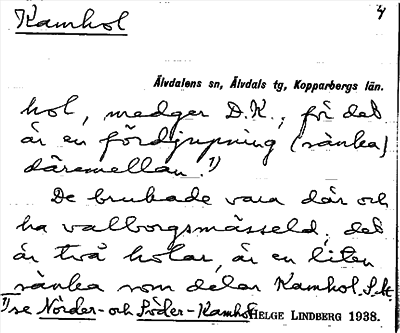 Kamhol 4
Älvdalens sn, Älvdals tg, Kopparbergs län.
hol, medger D.K., för det
är en fördjupning (sänka)
däremellan.¹⁾
De brukade vara där och
ha valborgsmässeld, det
är två holar, är en liten
sänka som delar Kamhol. S.M.
¹⁾ se Nörder- och Söder-Kamhol
HELGE LINDBERG 1938.